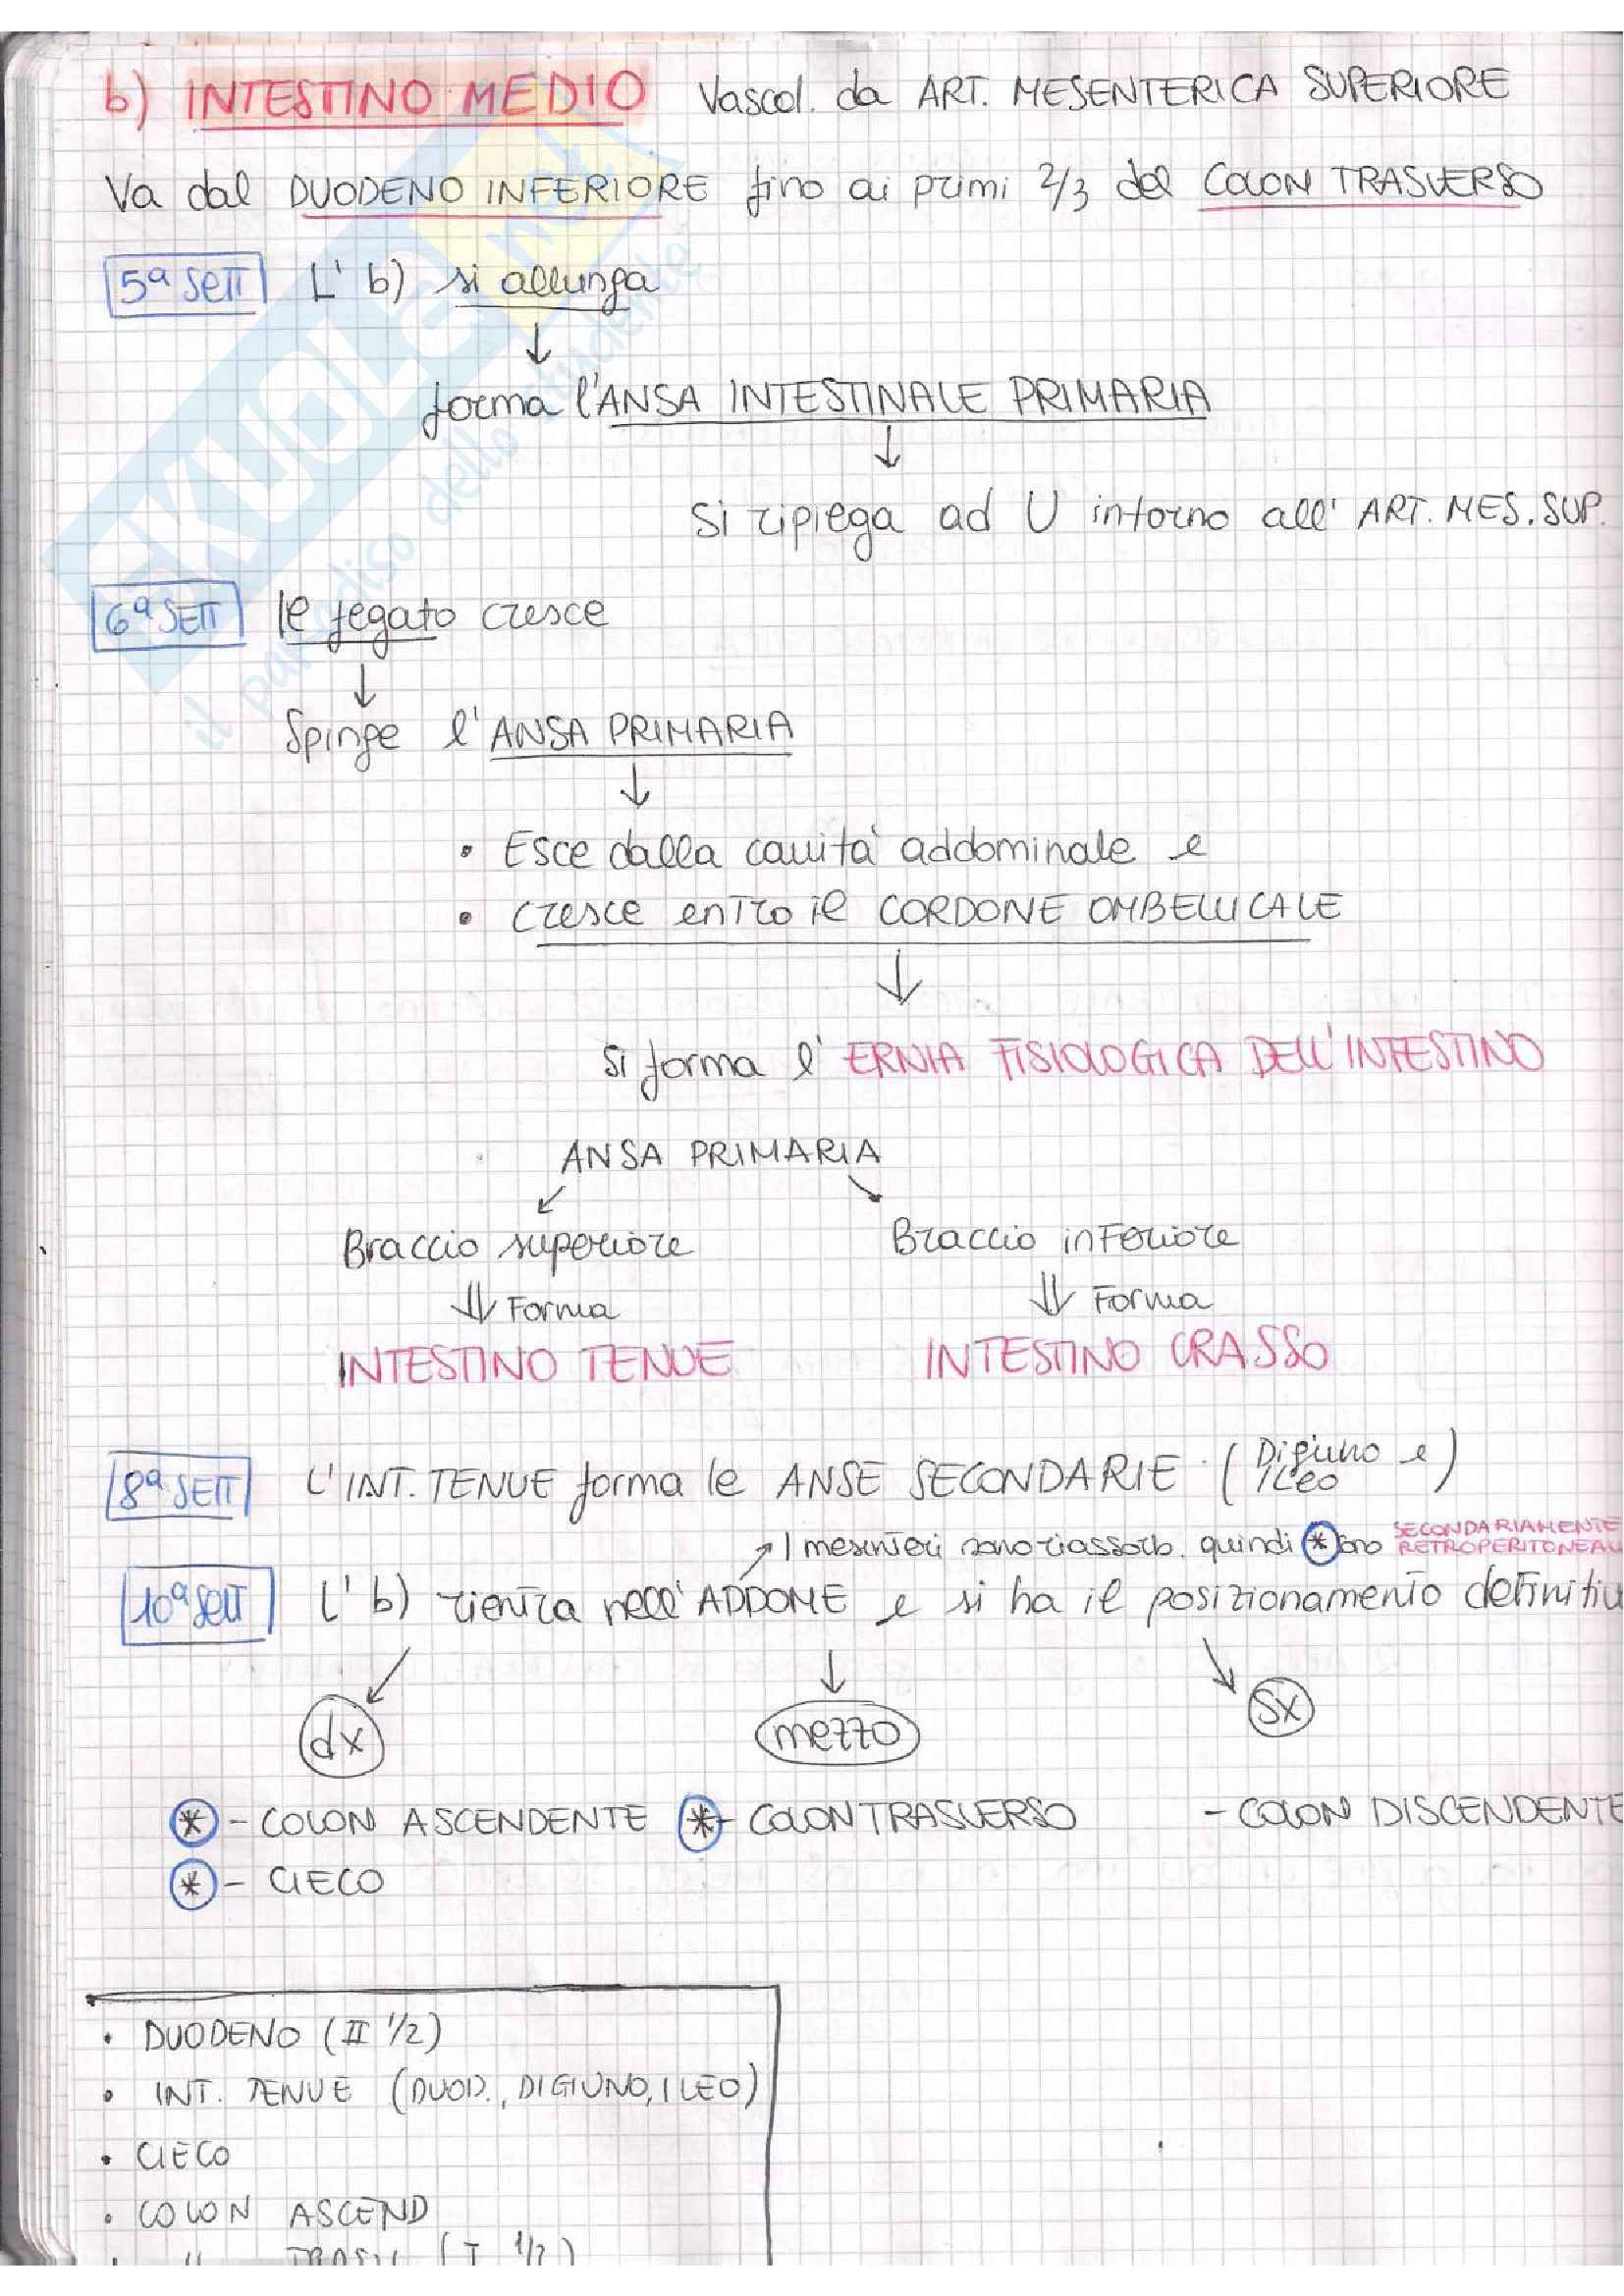 b) INTESTINO MEDIO Vascol. da ART. MESENTERICA SUPERIORE
Va dal DUODENO INFERIORE fino ai primi 2/3 del COLON TRASVERSO
5ª SETT L' b) si allunga
↓
forma l'ANSA INTESTINALE PRIMARIA
↓
Si ripiega ad U intorno all' ART. MES. SUP.
6ª SETT Il fegato cresce
↓
Spinge l'ANSA PRIMARIA
↓
• Esce dalla cavità addominale e
• Cresce entro il CORDONE OMBELLICALE
↓
Si forma l' ERNIA FISIOLOGICA DELL'INTESTINO
ANSA PRIMARIA
↙ ↘
Braccio superiore Braccio inferiore
⇓ Forma ⇓ Forma
INTESTINO TENUE INTESTINO CRASSO
8ª SETT L'INT. TENUE forma le ANSE SECONDARIE (Digiuno e Ileo)
↗ I mesenteri sono riassorb. quindi * sono SECONDARIAMENTE RETROPERITONEALI
10ª SETT L' b) rientra nell'ADDOME e si ha il posizionamento definitiv
↙ ↓ ↘
dx mezzo sx
* - COLON ASCENDENTE * - COLON TRASVERSO - COLON DISCENDENTE
* - CIECO
• DUODENO (II 1/2)
• INT. TENUE (DUOD., DIGIUNO, ILEO)
• CIECO
• COLON ASCEND
• " TRASV. (I 1/2)
SKUOLA.net
il paradiso dello studente